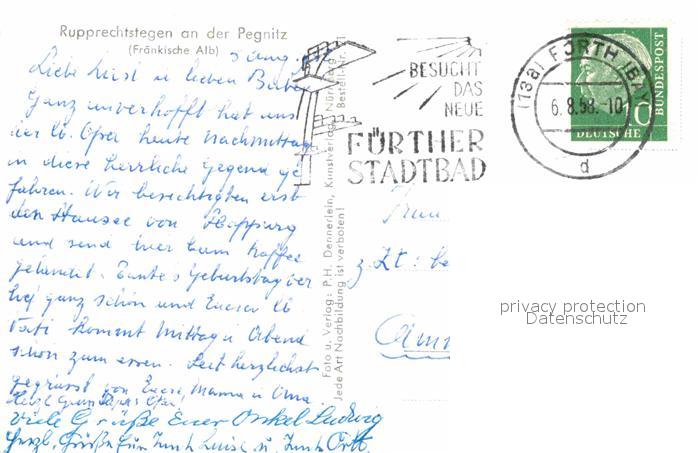 Rupprechtstegen an der Pegnitz
(Fränkische Alb)
5 Aug.
Liebe u lieben Buben
Ganz unverhofft hat uns
der lb. Opa heute Nachmittag
in diese herrliche Gegend ge
fahren. Wir besichtigten erst
den Stausee von Happurg
und sind hier beim Kaffee
gelandet. Tante's Geburtstag ver
lief ganz schön und Euer lb
Vati kommt Mittag u Abend
schon zum essen. Seit herzlichst
gegrüsst von Eurer Mama u Oma.
Herzl. Grüsse Opa
Viele Grüße Euer Onkel Ludwig
Herzl. Grüße Luise u.
Foto u. Verlag: P.H. Dennerlein, Kunstverlag, Nürnberg
Jede Art Nachbildung ist verboten!
Bestell-Nr.
BESUCHT
DAS
NEUE
FÜRTHER
STADTBAD
(13a) FÜRTH (BAY)
6.8.58.-10
d
10
DEUTSCHE BUNDESPOST
Frau
z. Zt: be
privacy protection
Datenschutz